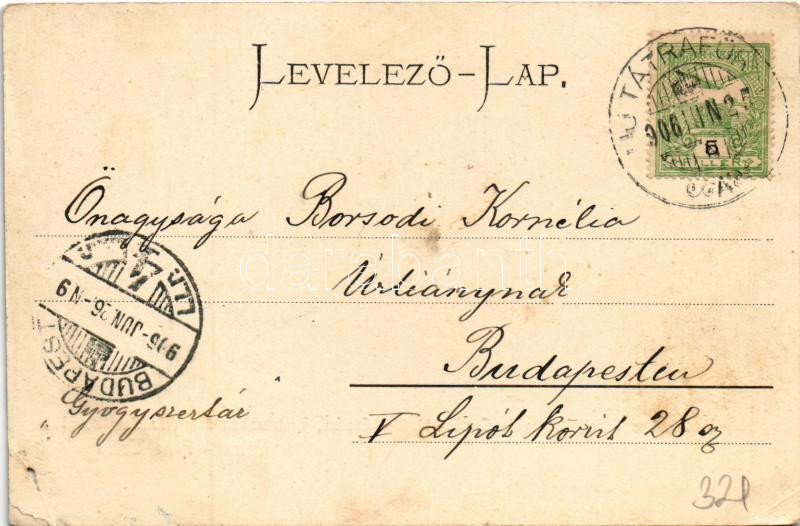 LEVELEZŐ-LAP.
TÁTRAFÜR
906 JUN 25
5
Őnagysága Borsodi Kornélia
Úrleánynak
Budapesten
V Lipót körút 28 sz
Gyógyszertár
BUDAPEST
906-JUN 26-N9
darabanth
321